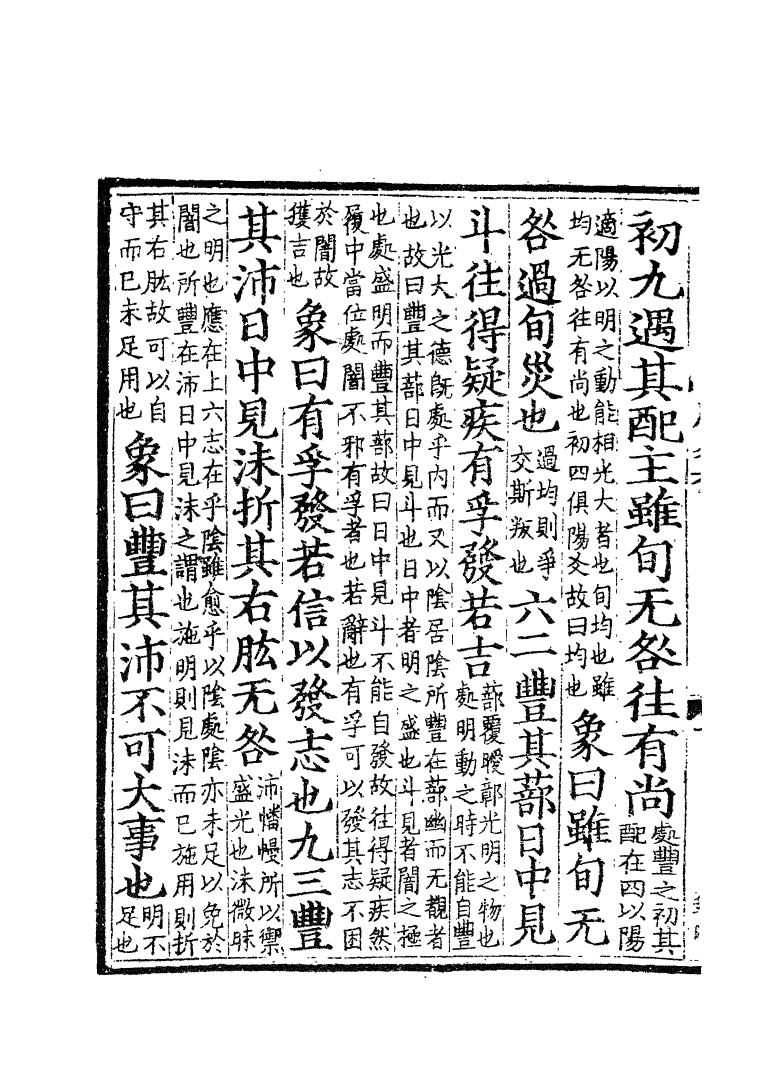 初九遇其配主雖旬无咎往有尚處豐之初其配在四以陽
適陽以明之動能相光大者也旬均也雖均无咎往有尚也初四俱陽爻故曰均也象曰雖旬无
咎過旬災也過均則爭交斯叛也六二豐其蔀日中見
斗往得疑疾有孚發若吉蔀覆曖鄣光明之物也處明動之時不能自豐
以光大之德旣處乎內而又以陰居陰所豐在蔀幽而无覩者也故曰豐其蔀日中見斗也日中者明之盛也斗見者闇之極
也處盛明而豐其蔀故曰日中見斗不能自發故往得疑疾然履中當位處闇不邪有孚者也若辭也有孚可以發其志不困
於闇故獲吉也象曰有孚發若信以發志也九三豐
其沛日中見沬折其右肱无咎沛幡幔所以禦盛光也沬微昧
之明也應在上六志在乎陰雖愈乎以陰處陰亦未足以免於闇也所豐在沛日中見沬之謂也施明則見沬而已施用則折
其右肱故可以自守而已未足用也象曰豐其沛不可大事也明不足也